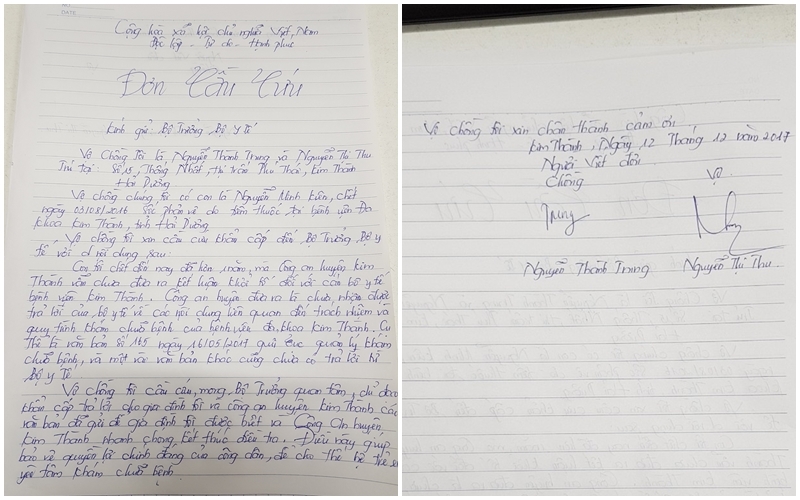 Cộng hòa xã hội chủ nghĩa Việt Nam
Độc lập - Tự do - Hạnh phúc
Đơn Cầu Cứu
Kính gửi Bộ Trưởng Bộ y tế
Vợ Chồng Tôi là Nguyễn Thành Trung và Nguyễn Thị Thu
Trú tại: Số 15, Thống Nhất, thị trấn Phú Thái, Kim Thành
Hải Dương
Vợ chồng chúng tôi có con là Nguyễn Minh Kiên, chết
ngày 03/08/2016 sốc phản vệ do tiêm thuốc tại bệnh viện Đa
khoa Kim Thành, tỉnh Hải Dương.
Vợ chồng tôi xin cầu cứu khẩn cấp đến Bộ Trưởng Bộ y
tế với nội dung sau:
Con tôi chết đến nay đã hơn năm, mà Công an huyện Kim
Thành vẫn chưa đưa ra kết luận khởi tố đối với cán bộ y tế
bệnh viện Kim Thành. Công an huyện đưa ra là chưa nhận được
trả lời của bộ y tế về các nội dung liên quan đến trách nhiệm và
quy trình khám chữa bệnh của bệnh viện đa khoa Kim Thành. Cụ
thể là văn bản số 165 ngày 16/05/2017 gửi cục quản lý khám
chữa bệnh, và một vài văn bản khác cũng chưa có trả lời từ
Bộ y Tế
Vợ chồng tôi cầu cứu, mong Bộ Trưởng quan tâm, chỉ đạo
khẩn cấp trả lời cho gia đình tôi và công an huyện Kim Thành các
văn bản đã gửi để gia đình tôi được biết và Công An huyện
Kim Thành nhanh chóng kết thúc điều tra. Điều này giúp
bảo vệ quyền lợi chính đáng của công dân, để cho thế hệ trẻ em
yên tâm khám chữa bệnh
Vợ chồng tôi xin chân thành cảm ơn
Kim Thành, Ngày 12 Tháng 12 năm 2017
Người Viết đơn
Chồng Vợ
Trung
Nguyễn Thành Trung Nguyễn Thị Thu